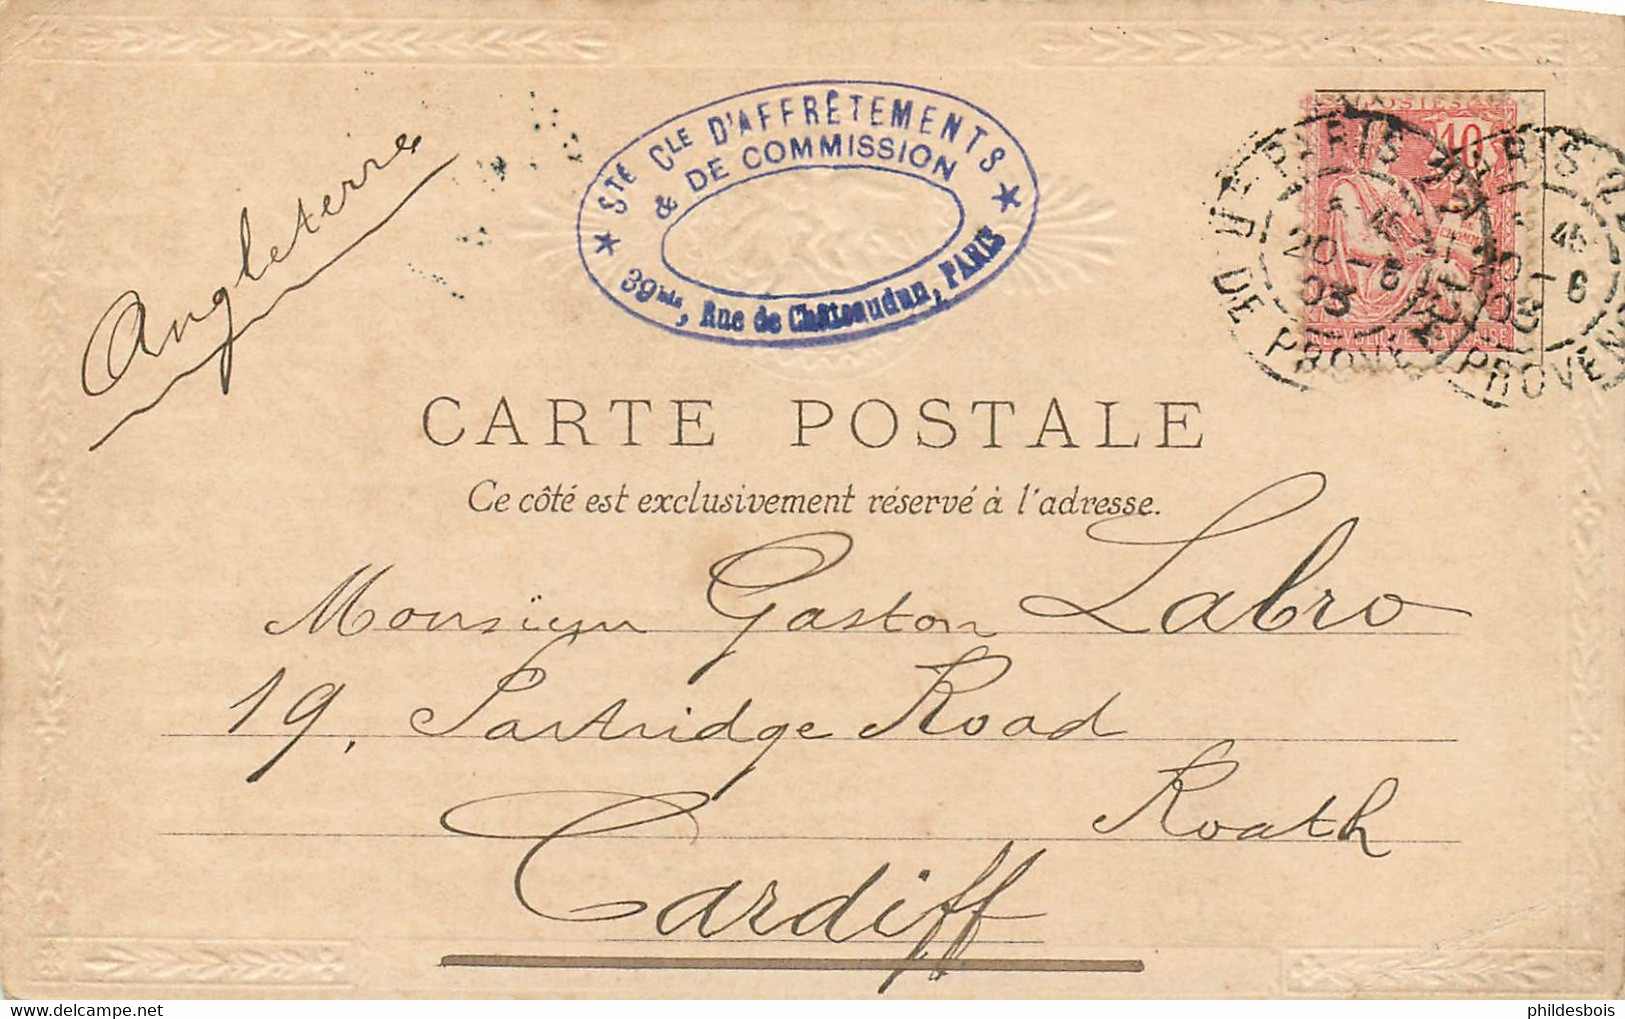 STÉ CLE D'AFFRÊTEMENTS
& DE COMMISSION
39bis, Rue de Châteaudun, PARIS
POSTES
10
Angleterre
PARIS 22
20 - 6
03
R. DE PROVENCE
PARIS 22
45
20 - 6
03
PROVENCE
CARTE POSTALE
Ce côté est exclusivement réservé à l'adresse.
Monsieur Gaston Labro
19, Partridge Road
Roath
Cardiff
phildesbois